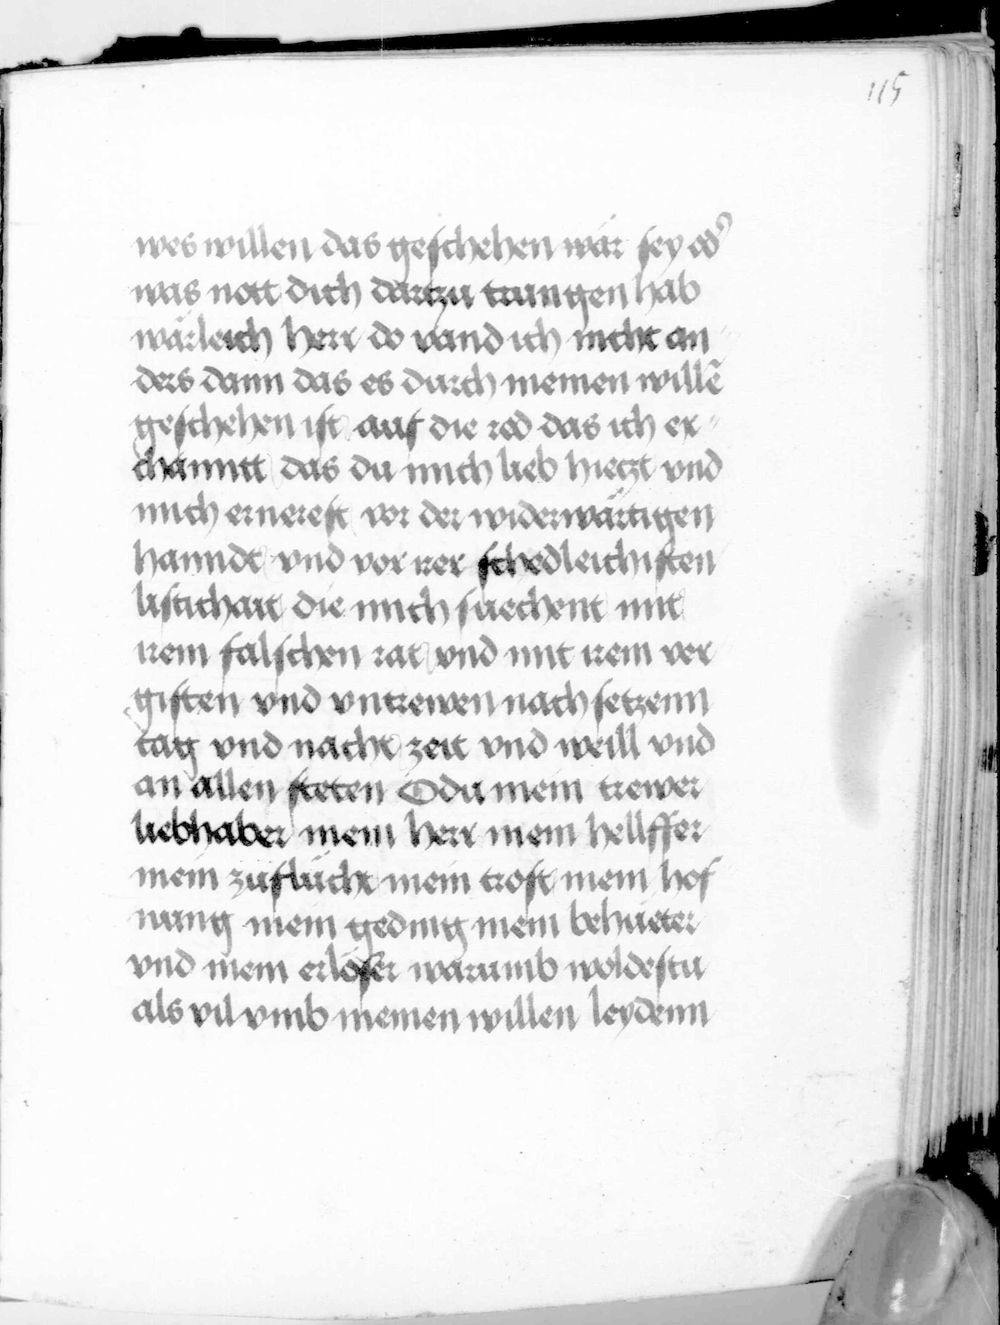 115
wes willen das geschehen wär sey od᾽
was nott dich dartzu trungen hab
wärleich herr do vand ich nicht an
ders dann das es durch meinen willē
geschehen ist auf die red das ich er-
channtt das du mich lieb hietzt vnd
mich ernerest vor der widerwärtigen
hanndt vnd vor irer schedleichisten
listichait die mich suechent mit
irem falschen rat vnd mit irem ver
giften vnd vntrewen nach setzenn
tag vnd nacht zeit vnd weill vnd
an allen steten O du mein trewer
liebhaber mein herr mein hellffer
mein zuflücht mein trost mein hof
nung mein geding mein behüeter
vnd mein erlöser warumb woldestu
als vil vmb meinen willen leydenn